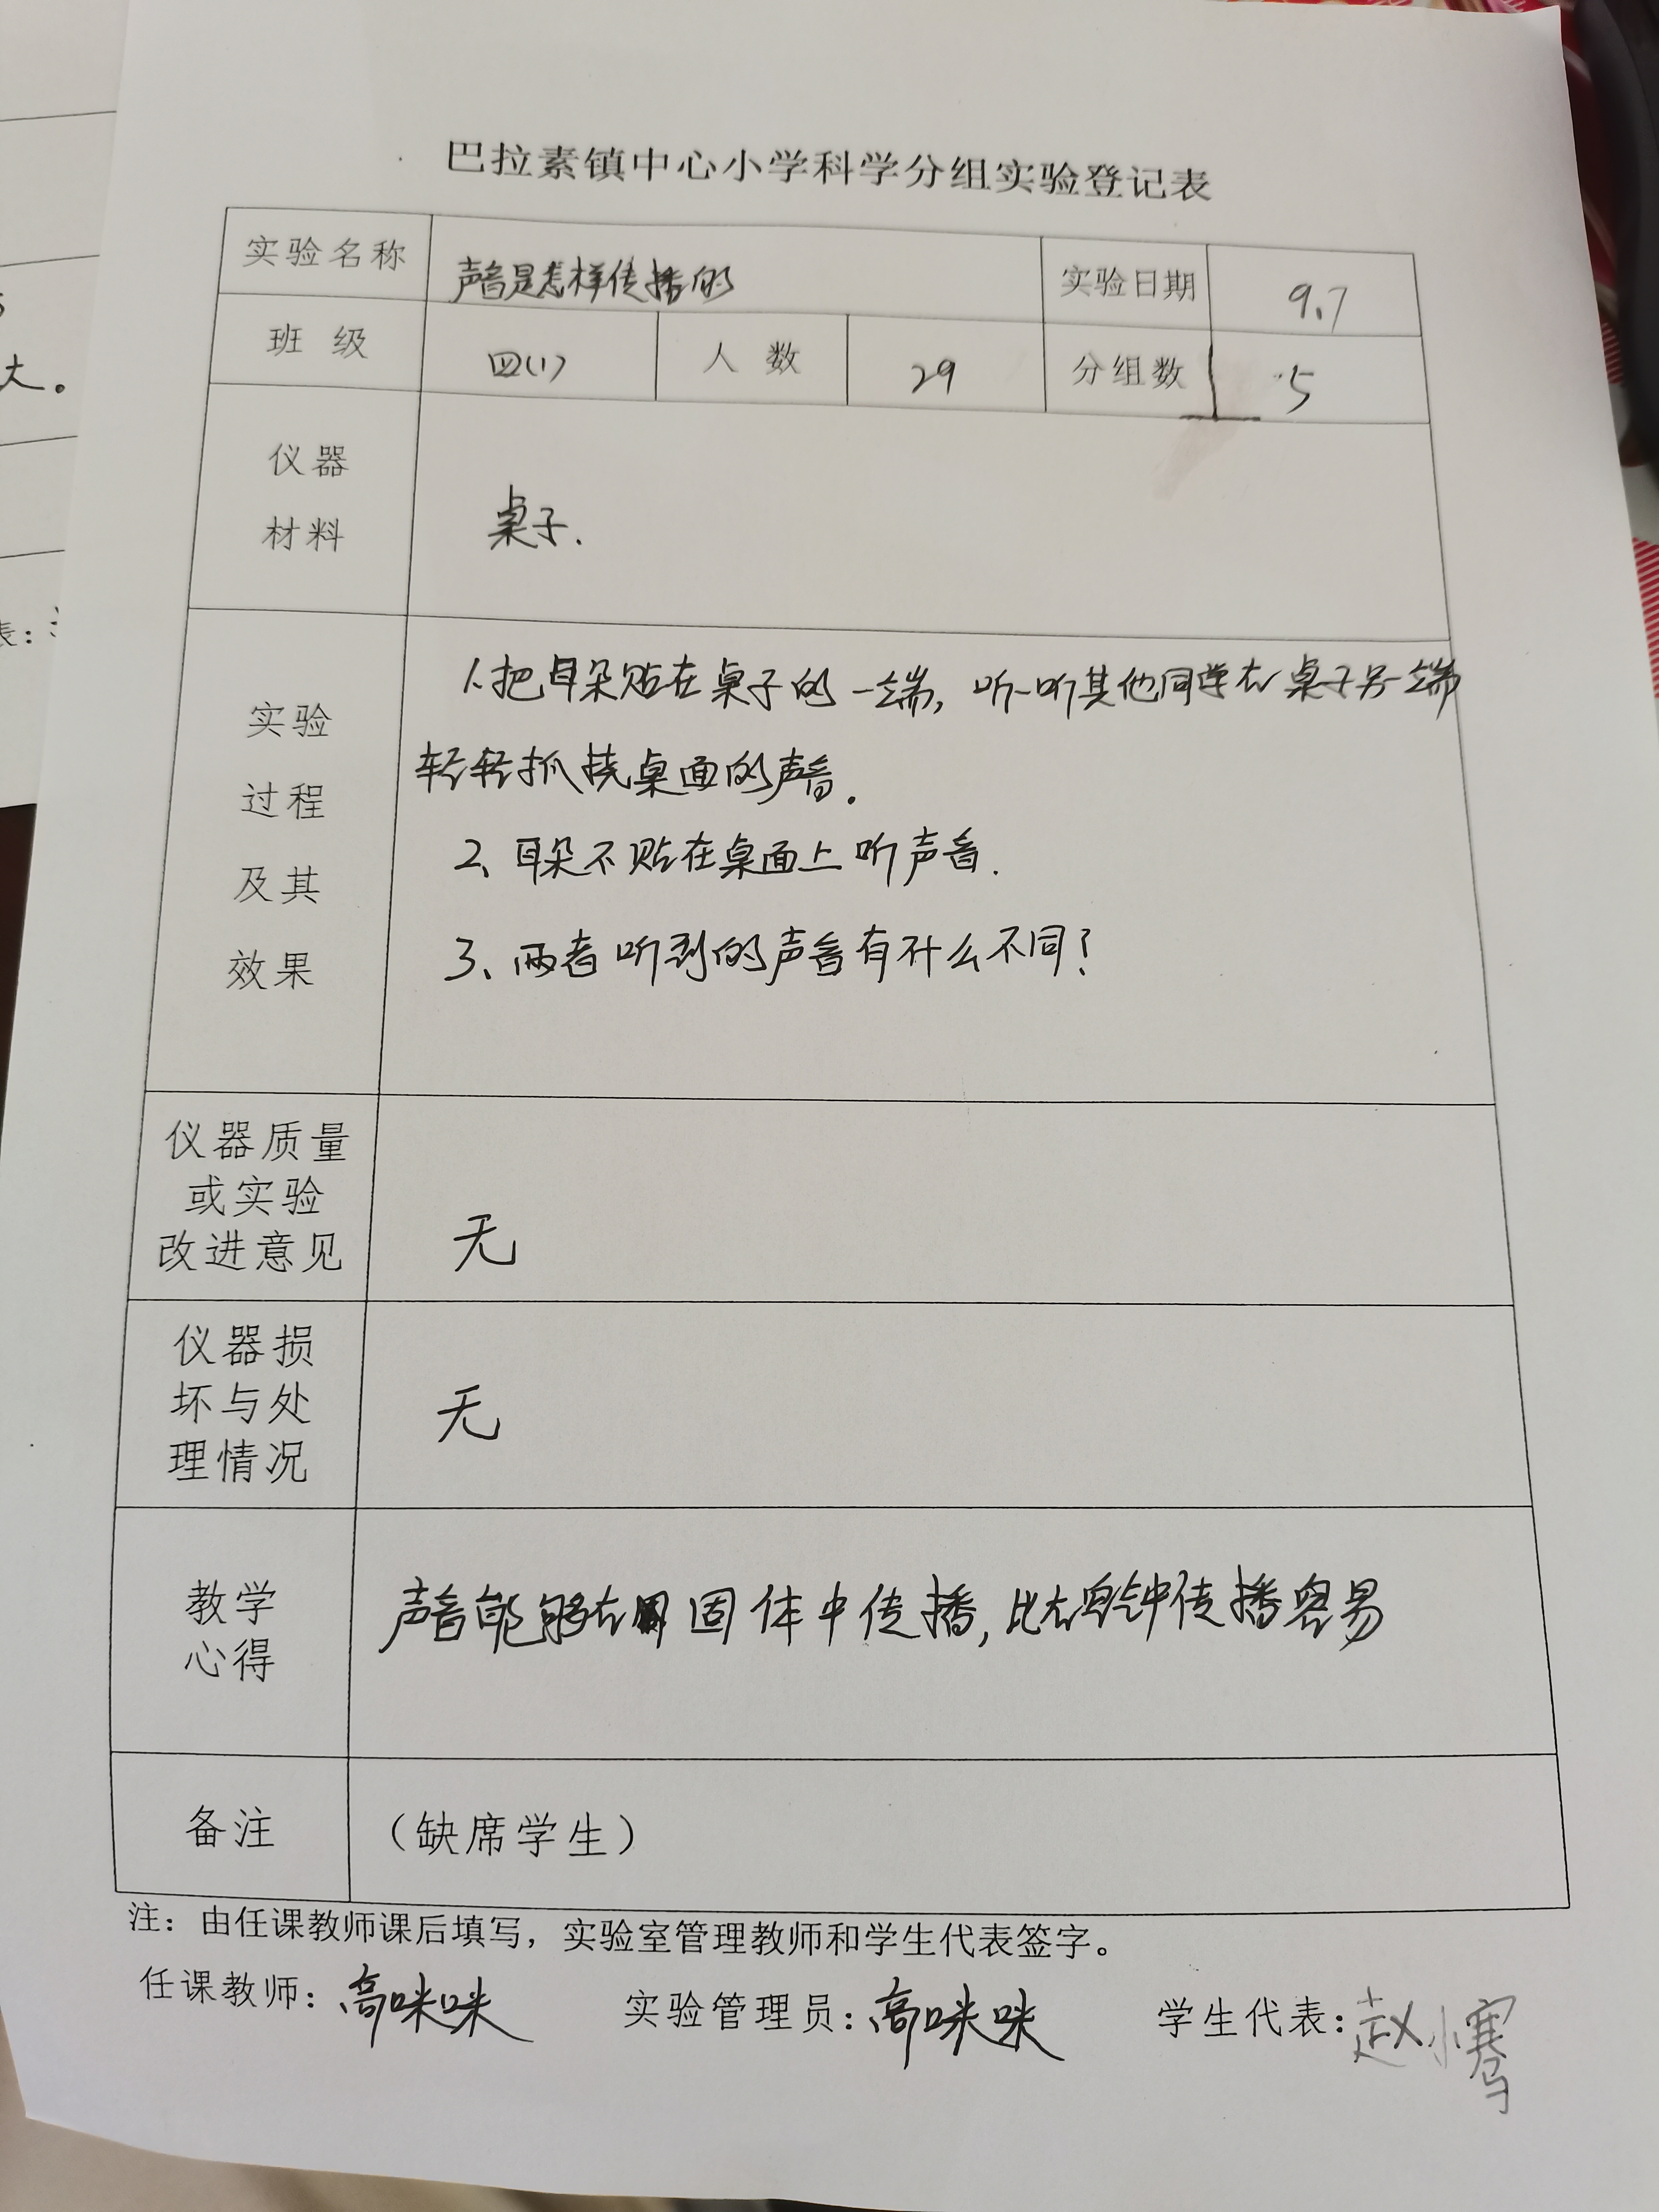 巴拉素镇中心小学科学分组实验登记表
实验名称 声音是怎样传播的 实验日期 9.7
班 级 四(1) 人 数 29 分组数 5
仪器
材料
桌子.
实验
过程
及其
效果
1.把耳朵贴在桌子的一端,听一听其他同学在桌子另一端
轻轻抓挠桌面的声音。
2、耳朵不贴在桌面上听声音.
3、两者听到的声音有什么不同?
仪器质量
或实验
改进意见
无
仪器损
坏与处
理情况
无
教学
心得
声音能够在固体中传播,比在空气中传播容易
备注 (缺席学生)
注：由任课教师课后填写，实验室管理教师和学生代表签字。
任课教师：高咪咪 实验管理员：高咪咪 学生代表：赵小骞
大。
表：